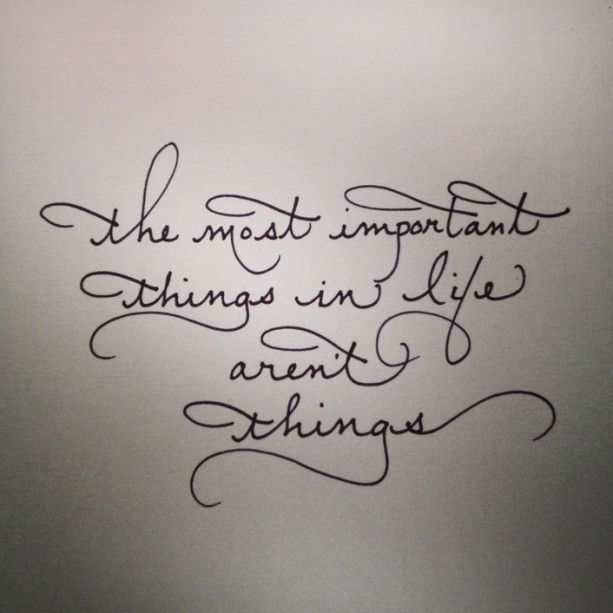 the most important
things in life
aren't
things